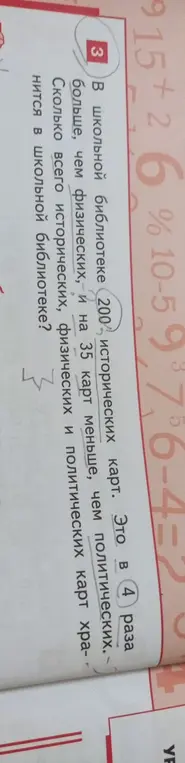 3
В школьной библиотеке 200 исторических карт. Это в 4 раза
больше, чем физических, и на 35 карт меньше, чем политических.
Сколько всего исторических, физических и политических карт хра-
нится в школьной библиотеке?